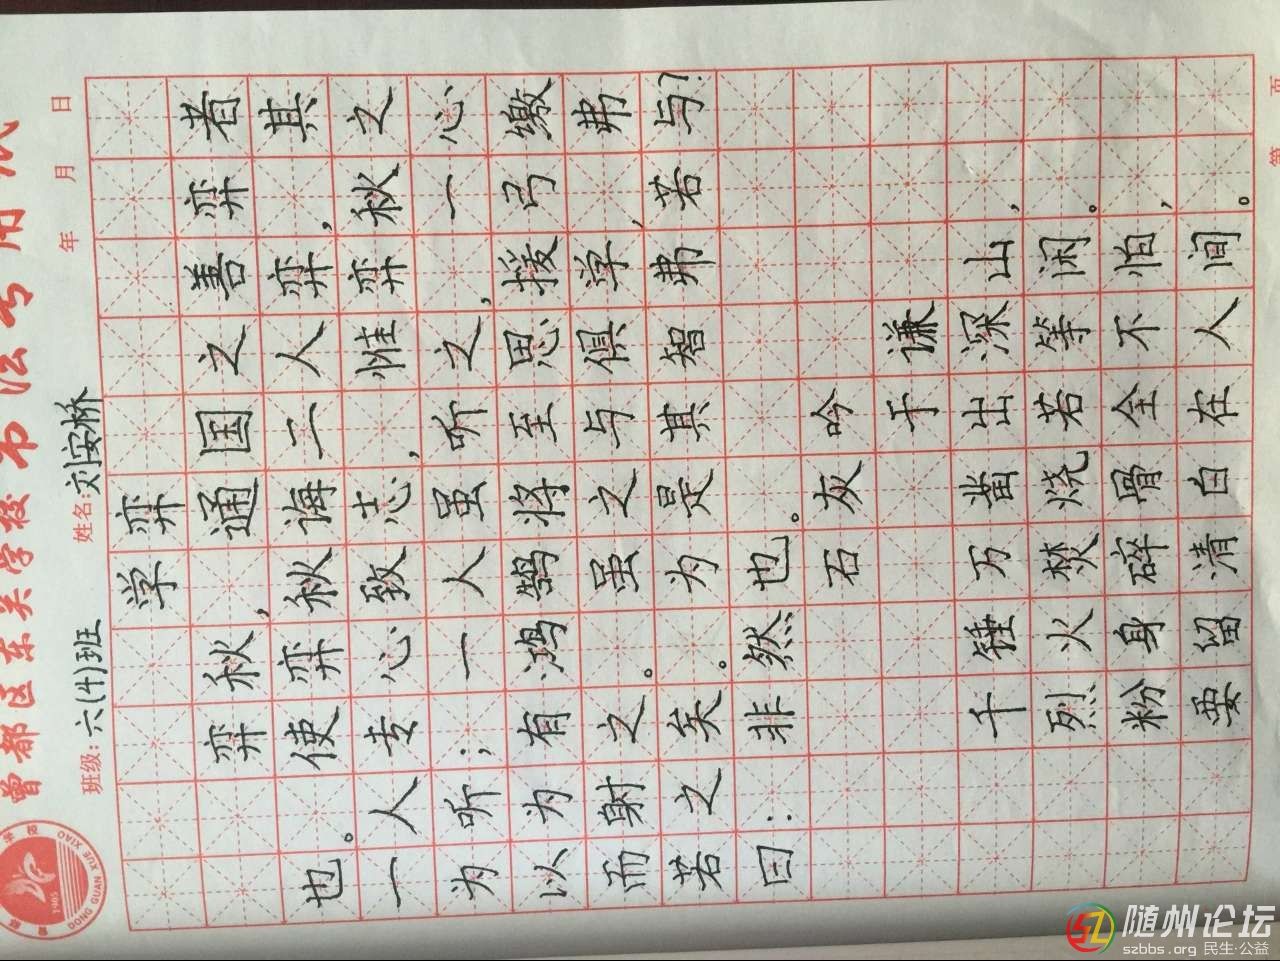 曾都区东关学校书法专用纸
班级:六(4)班 姓名:刘安桥 年 月 日
学弈
弈秋,通国之善弈者
也。使弈秋诲二人弈,其
一人专心致志,惟弈秋之
为听;一人虽听之,一心
以为有鸿鹄将至思援弓缴
而射之。虽之与俱学,弗
若之矣。为是其智弗若与?
曰:非然也。
石灰吟
于谦
千锤万凿出深山,
烈火焚烧若等闲。
粉身碎骨全不怕,
要留清白在人间。
第 页
DONG GUAN XUE XIAO
随州论坛
szbbs.org 民生·公益